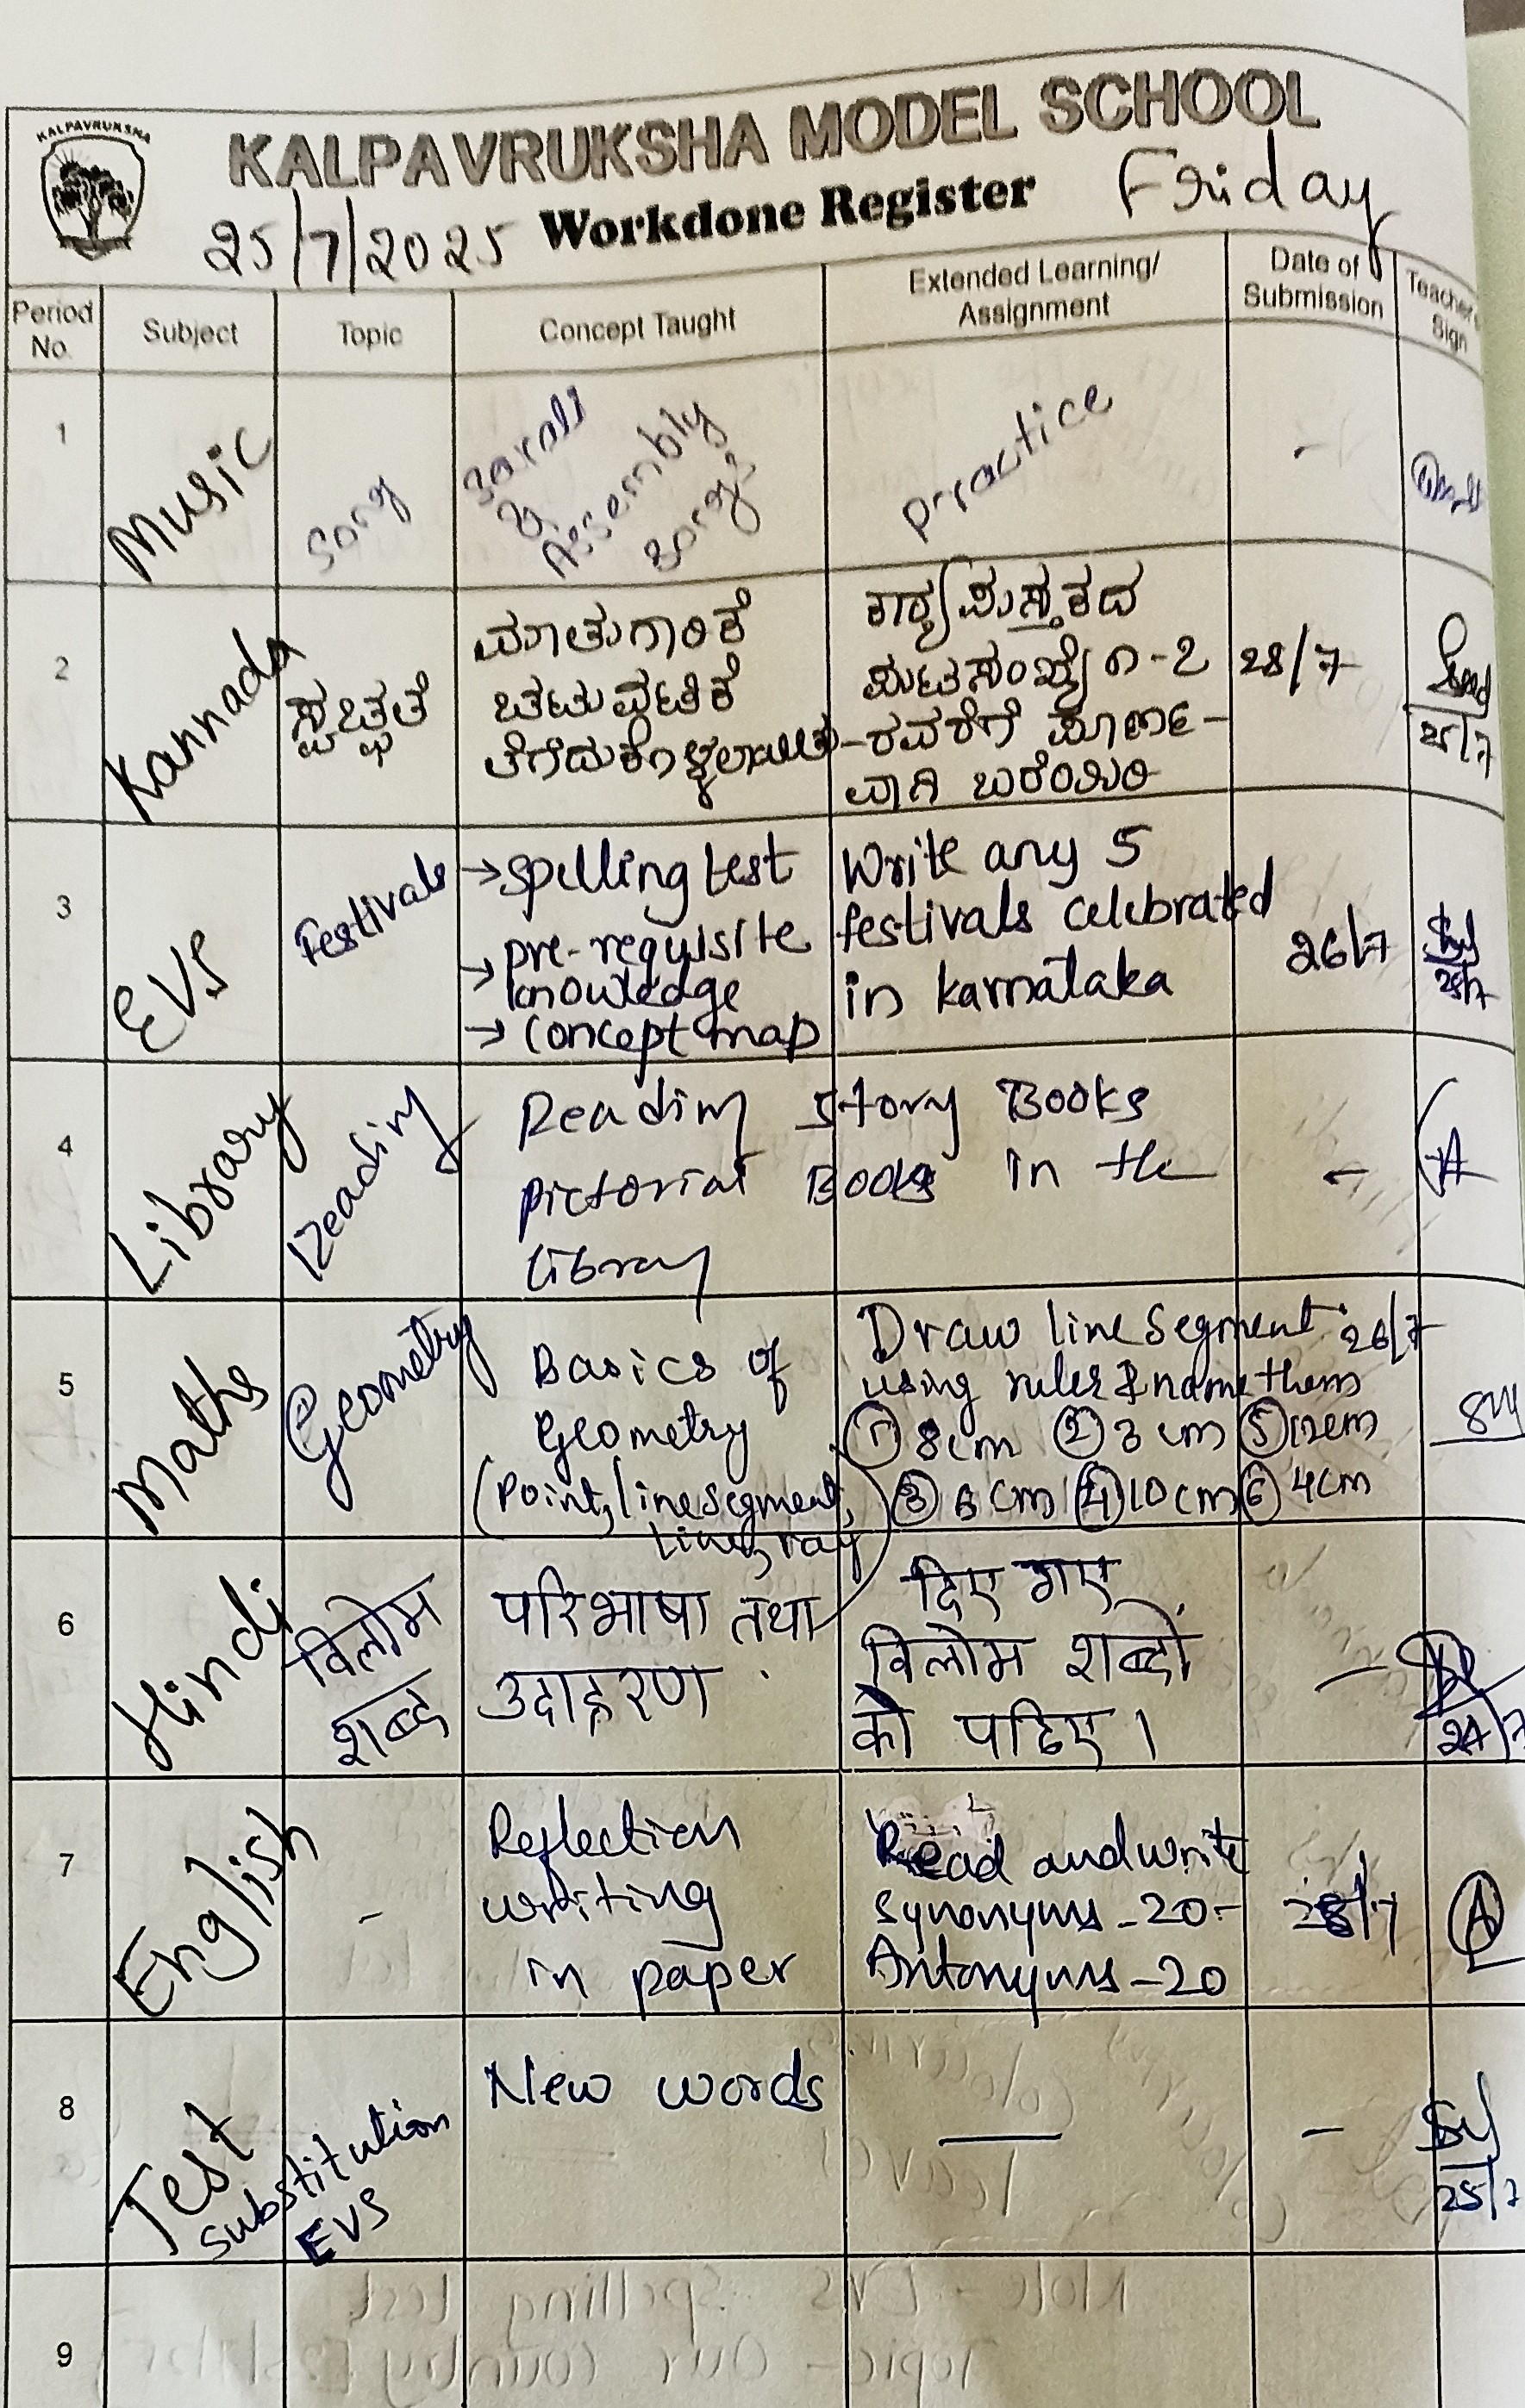 KALPAVRUKSHA
KALPAVRUKSHA MODEL SCHOOL
25/7/2025 Workdone Register Friday
Period No. Subject Topic Concept Taught Extended Learning/ Assignment Date of Submission Teacher's Sign
1
Music
Song
Sarali
&
Assembly
songs
practice
-
2
Kannada
ಸ್ವಚ್ಛತೆ
ಮಾತುಗಾರಿಕೆ
ಚಟುವಟಿಕೆ
ತೆಗೆದುಕೊಳ್ಳಲಾಯಿತು
ಕಾರ್ಯಪುಸ್ತಕದ
ಪುಟಸಂಖ್ಯೆ ೧-೭
ರವರೆಗೆ ಪೂರ್ಣ-
ವಾಗಿ ಬರೆಯಿರಿ
28/7
25/7
3
EVS
Festivals
→ spelling test
→ pre-requisite
knowledge
→ concept map
Write any 5
festivals celebrated
in karnataka
26/7
25/7
4
Library
Reading
Reading Story Books
pictorial Books in the
library
-
5
Maths
Geometry
Basics of
Geometry
(Point, line segment,
Line, ray)
Draw line segment
using ruler & name them
① 8cm ② 3 cm ⑤ 12cm
③ 6 cm ④ 10 cm ⑥ 4cm
26/7
6
Hindi
विलोम
शब्द
परिभाषा तथा
उदाहरण
दिए गए
विलोम शब्दों
को पढिए।
-
7
English
-
Reflection
writing
in paper
Read and write
synonyms - 20
Antonyms - 20
28/7
A
8
Test
substitution
EVS
New words
-
25/7
9